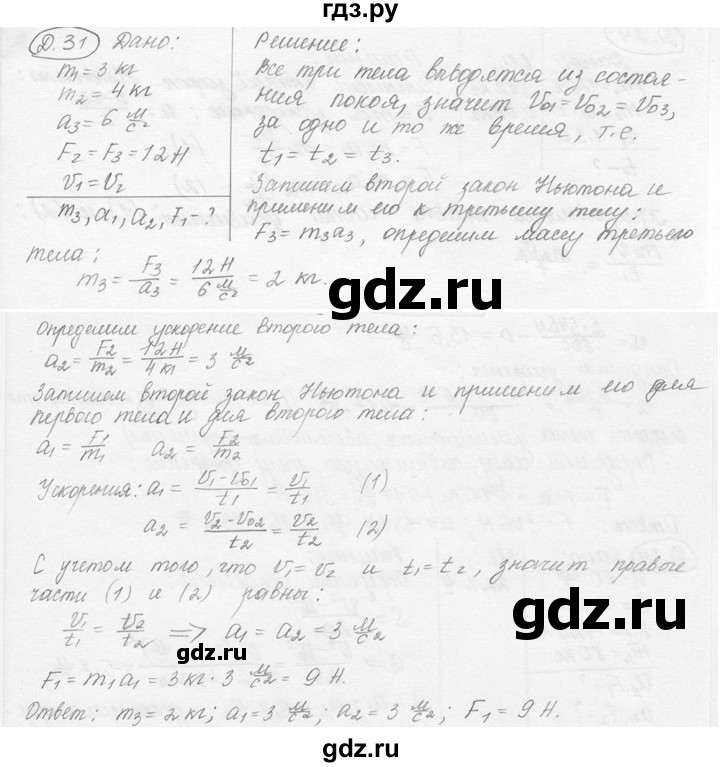 гдз.ру
Д.31 Дано:
m₁ = 3 кг
m₂ = 4 кг
a₃ = 6 м/с²
F₂ = F₃ = 12 Н
v₁ = v₂
m₃, a₁, a₂, F₁ - ?
Решение:
Все три тела выводятся из состоя-
ния покоя, значит v₀₁ = v₀₂ = v₀₃,
за одно и то же время, т.е.
t₁ = t₂ = t₃.
Запишем второй закон Ньютона и
применим его к третьему телу:
F₃ = m₃a₃, определим массу третьего
тела:
m₃ = F₃/a₃ = 12 Н / 6 м/с² = 2 кг.
Определим ускорение второго тела:
a₂ = F₂/m₂ = 12 Н / 4 кг = 3 м/с²
Запишем второй закон Ньютона и применим его для
первого тела и для второго тела:
a₁ = F₁/m₁ a₂ = F₂/m₂
Ускорения: a₁ = (v₁ - v₀₁)/t₁ = v₁/t₁ (1)
a₂ = (v₂ - v₀₂)/t₂ = v₂/t₂ (2)
С учетом того, что v₁ = v₂ и t₁ = t₂, значит правые
части (1) и (2) равны:
v₁/t₁ = v₂/t₂ => a₁ = a₂ = 3 м/с²
F₁ = m₁a₁ = 3 кг · 3 м/с² = 9 Н.
Ответ: m₃ = 2 кг; a₁ = 3 м/с²; a₂ = 3 м/с²; F₁ = 9 Н.
gdz.ru
gdz.ru
gdz.ru
gdz.ru
gdz.ru
gdz.ru